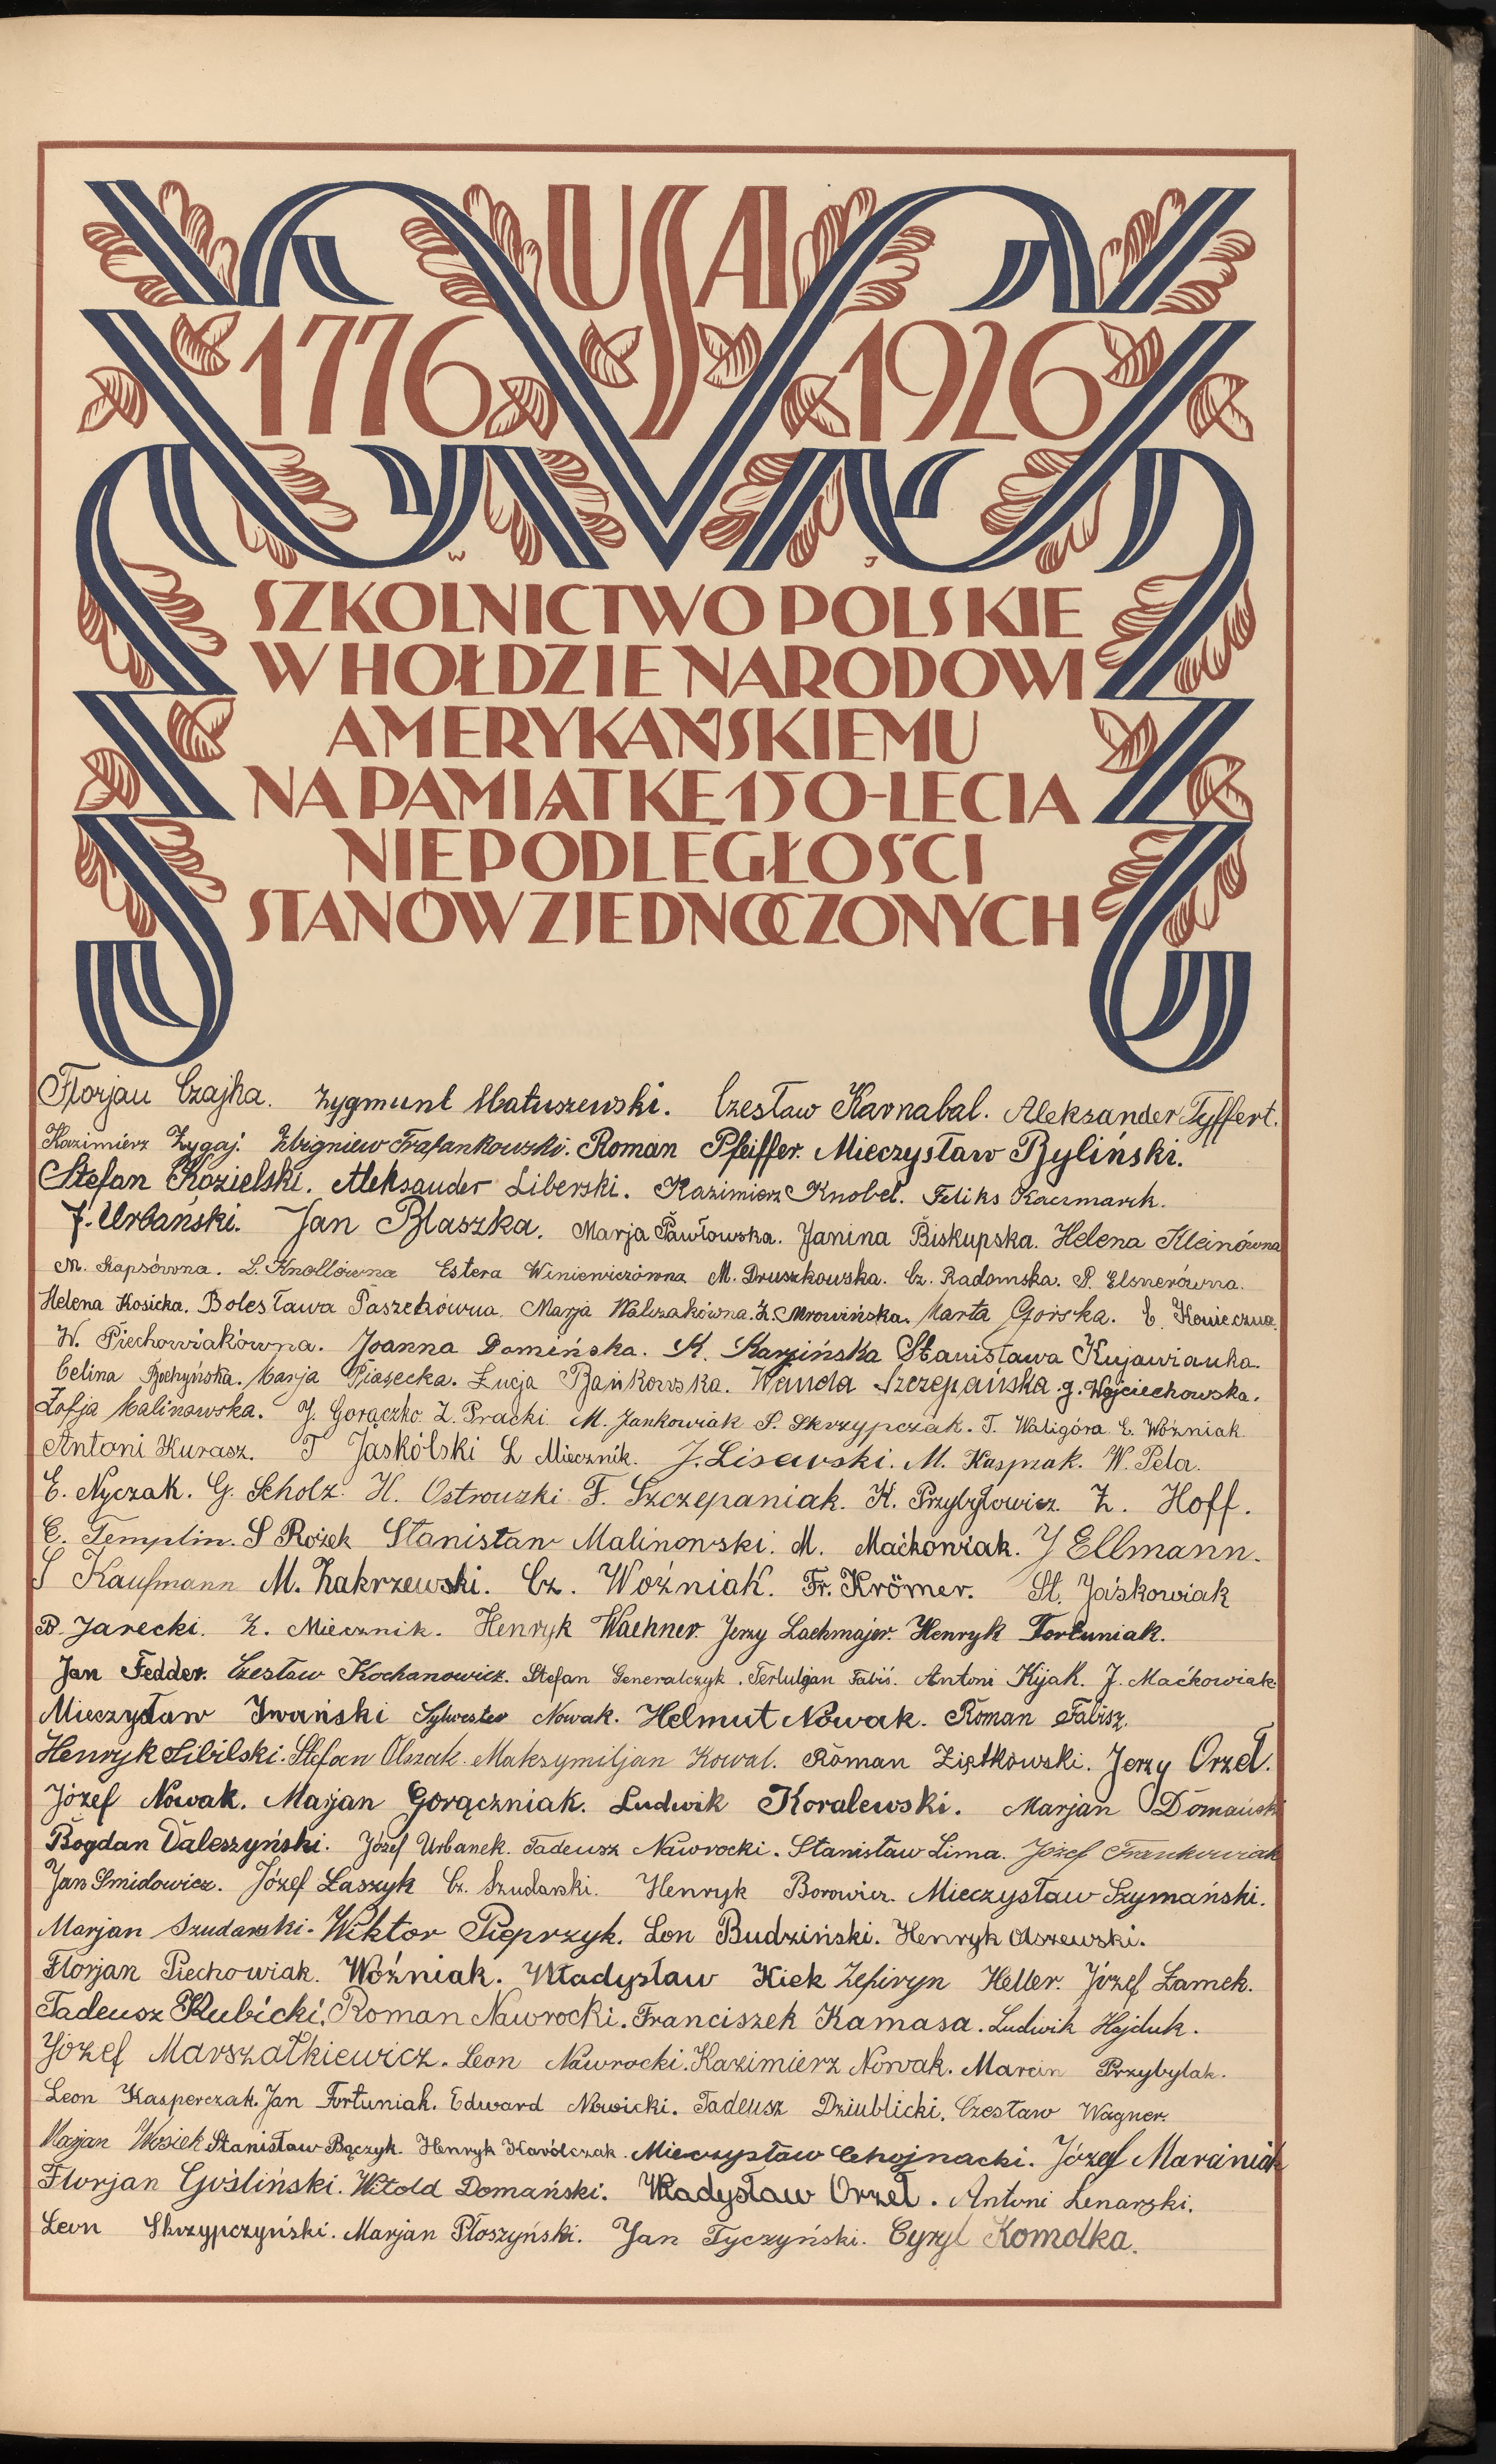 USA
1776 1926
W J
SZKOLNICTWO POLSKIE
W HOŁDZIE NARODOWI
AMERYKAŃSKIEMU
NA PAMIĄTKĘ 150-LECIA
NIEPODLEGŁOŚCI
STANÓW ZJEDNOCZONYCH
Florjan Czajka. Zygmunt Matuszewski. Czesław Karnabal. Aleksander Tyffert.
Kazimierz Zygaj. Zbigniew Frafankowski. Roman Pfeiffer. Mieczysław Byliński.
Stefan Kozielski. Aleksander Liberski. Kazimierz Knobel. Feliks Kaczmarek.
J. Urbański. Jan Blaszka. Marja Pawłowska. Janina Biskupska. Helena Kleinówna
M. Rapsówna. L. Knollówna Estera Winiewiczówna M. Druszkowska. Cz. Radomska. P. Elsnerówna.
Helena Kosicka. Bolesława Paszekówna. Marja Walczakówna. Z. Mrowińska. Marta Gorska. E. Konieczna.
W. Piechowiakówna. Joanna Domińska. K. Karzińska Stanisława Kujawianka.
Celina Bochyńska. Marja Piasecka. Łucja Bańkowska. Wanda Szczepańska. J. Wojciechowska.
Zofja Malinowska. J. Gorączko. Z. Pracki. M. Jankowiak S. Skrzypczak. T. Waligóra E. Woźniak.
Antoni Kurasz. T Jaskólski L Miecznik. J. Lisewski. M. Kasprzak. W. Pela.
E. Nyczak. G. Scholz. H. Ostrowski F. Szczepaniak. K. Przybyłowicz. Z. Hoff.
E. Templin. S Rożek Stanisław Malinowski. M. Maćkowiak. J Ellmann.
S Kaufmann M. Zakrzewski. Cz. Woźniak. Fr. Krömer. St. Jaśkowiak
B. Jarecki. Z. Miecznik. Henryk Waehner. Jerzy Lachmajer. Henryk Fortuniak.
Jan Fedder. Czesław Kochanowicz. Stefan Generalczyk. Tertuljan Fabiś. Antoni Kijak. J. Maćkowiak.
Mieczysław Iwański Sylwester Nowak. Helmut Nowak. Roman Fabisz.
Henryk Sibilski. Stefan Olszak. Maksymiljan Kowal. Roman Ziętkowski. Jerzy Orzeł.
Józef Nowak. Marjan Gorączniak. Ludwik Koralewski. Marjan Domański
Bogdan Daleszyński. Józef Urbanek. Tadeusz Nawrocki. Stanisław Lima. Józef Frankowiak
Jan Smidowicz. Józef Łaszyk Cz. Szudarski. Henryk Borowicz. Mieczysław Szymański.
Marjan Szudarski. Wiktor Pieprzyk. Lon Budziński. Henryk Olszewski.
Florjan Piechowiak. Woźniak. Władysław Kiek Zefiryn Heller. Józef Łamek.
Tadeusz Kubicki. Roman Nawrocki. Franciszek Kamasa. Ludwik Hajduk.
Józef Marszałkiewicz. Leon Nawrocki. Kazimierz Nowak. Marcin Przybylak.
Leon Kasperczak. Jan Fortuniak. Edward Nowicki. Tadeusz Dziublicki. Czesław Wagner.
Marjan Wosiek Stanisław Bączyk. Henryk Karólczak. Mieczysław Chojnacki. Józef Maraniak
Florjan Gośliński. Witold Domański. Władysław Orzeł. Antoni Lenarski.
Leon Skrzypczyński. Marjan Płoszyński. Jan Tyczyński. Cyryl Komolka.